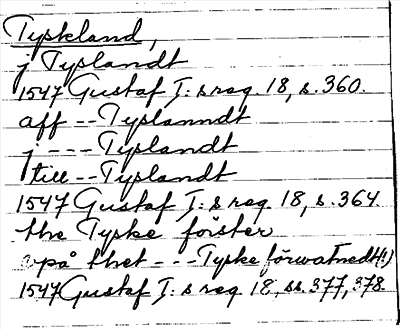 Tyskland,
j Tyslandt
1547 Gustaf I:s reg. 18, s. 360.
aff -- Tyslanndt
j --- Tyslandt
till -- Tyslandt
1547 Gustaf I:s reg. 18, s. 364.
the Tyske förster
vpå thet --- Tyske förwatnedt(!)
1547 Gustaf I:s reg. 18, ss. 377, 378.